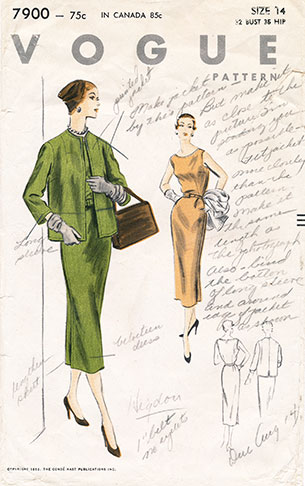 7900 - 75c IN CANADA 85c SIZE 14
32 BUST 35 HIP
VOGUE
PATTERN
Make jacket
by this pattern -
But make it
as close to the
picture I'm
sending you
as possible.
jacket
more closely
than the
pattern.
Make it
the same
length as
the photograph
Also - lined
the bottom
of long sleeve
and around
edge of jacket
as shown
Long
sleeve
lengthen
skirt
between
dress
1" belt
no eyelets
Due Aug
COPYRIGHT 1953, THE CONDÉ NAST PUBLICATIONS INC.